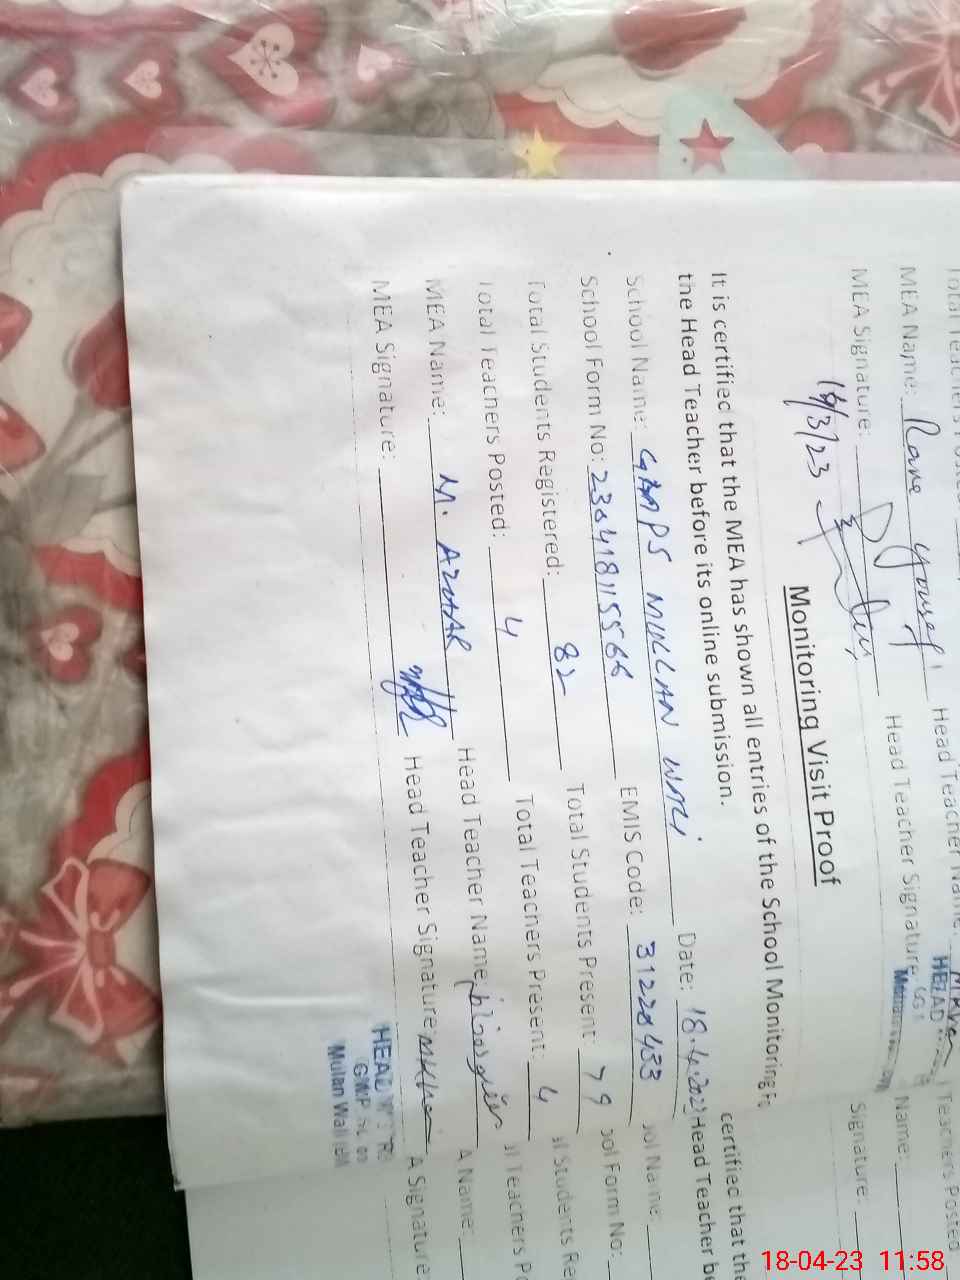 MEA Name: Rana Yousaf Head Teacher Name:
MEA Signature: Head Teacher Signature:
HEAD
16/3/23
Monitoring Visit Proof
It is certified that the MEA has shown all entries of the School Monitoring Fo
the Head Teacher before its online submission.
School Name: GMPS MULLAN WALI Date: 18.4.2023
School Form No: EMIS Code: 31228433
Total Students Registered: 82 Total Students Present: 79
Total Teachers Posted: 4 Total Teachers Present: 4
MEA Name: M. AZHAR Head Teacher Name:
MEA Signature: Head Teacher Signature:
HEAD
Mulan Wali
Teachers Posted
Name:
Signature:
certified that the
Head Teacher be
ool Name:
ool Form No:
al Students Re
al Teachers Po
A Name:
A Signature
18-04-23 11:58